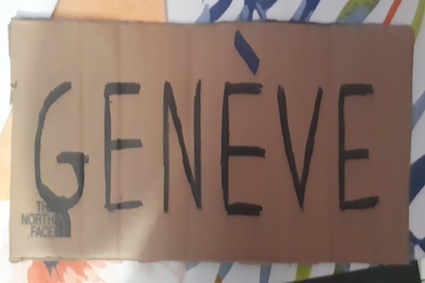 GENÈVE
THE
NORTH
FACE